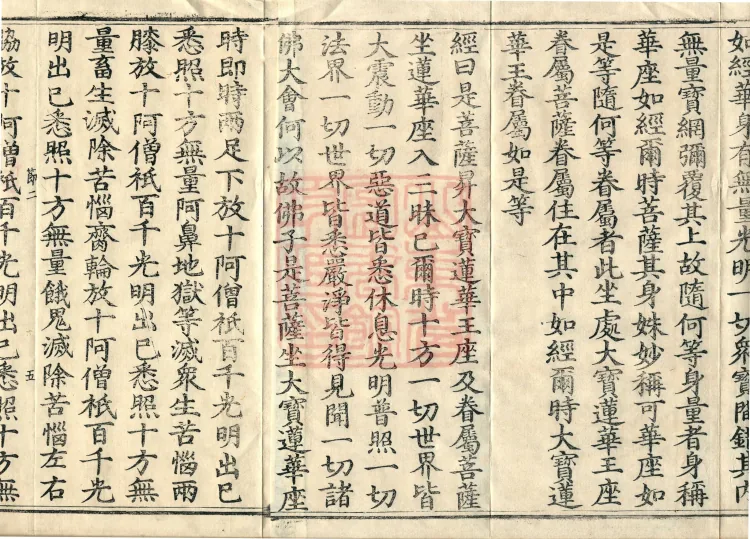 如經華身有無量光明一切眾寶間錯其內
無量寶網彌覆其上故隨何等身量者身稱
華座如經爾時菩薩其身姝妙稱可華座如
是等隨何等眷屬者此坐處大寶蓮華王座
眷屬菩薩眷屬住在其中如經爾時大寶蓮
華王眷屬如是等
經曰是菩薩昇大寶蓮華王座及眷屬菩薩
坐蓮華座入三昧已爾時十方一切世界皆
大震動一切惡道皆悉休息光明普照一切
法界一切世界皆悉嚴淨皆得見聞一切諸
佛大會何以故佛子是菩薩坐大寶蓮華座
時即時兩足下放十阿僧祇百千光明出已
悉照十方無量阿鼻地獄等滅衆生苦惱兩
膝放十阿僧祇百千光明出已悉照十方無
量畜生滅除苦惱齎輪放十阿僧祇百千光
明出已悉照十方無量餓鬼滅除苦惱左右
節二 五
脇放十阿僧祇百千光明出已悉照十方無